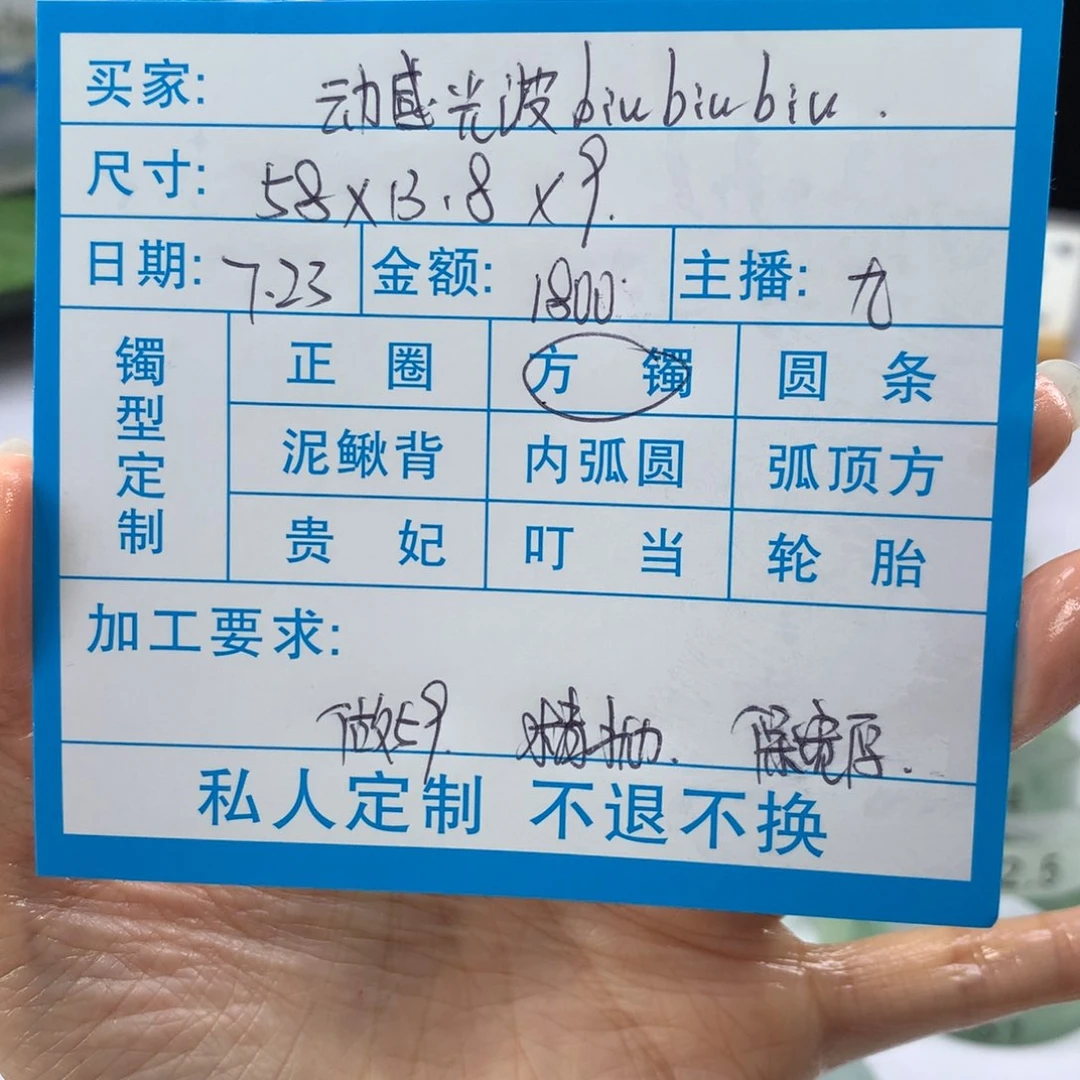 买家: 动感光波biubiubiu.
尺寸: 58×13.8×9.
日期: 7.23 金额: 1800. 主播: 九
镯型定制
正圈 方镯 圆条
泥鳅背 内弧圆 弧顶方
贵妃 叮当 轮胎
加工要求:
做59. 精抛. 保宽厚.
私人定制 不退不换
2.5